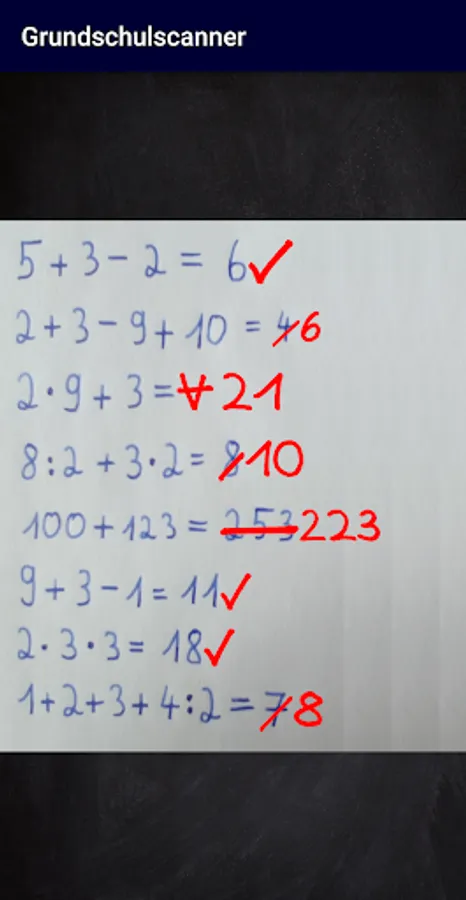 Grundschulscanner
5 + 3 - 2 = 6 ✓
2 + 3 - 9 + 10 = 4 6
2 · 9 + 3 = 21
8 : 2 + 3 · 2 = 8 10
100 + 123 = 253 223
9 + 3 - 1 = 11 ✓
2 · 3 · 3 = 18 ✓
1 + 2 + 3 + 4 : 2 = 7 8